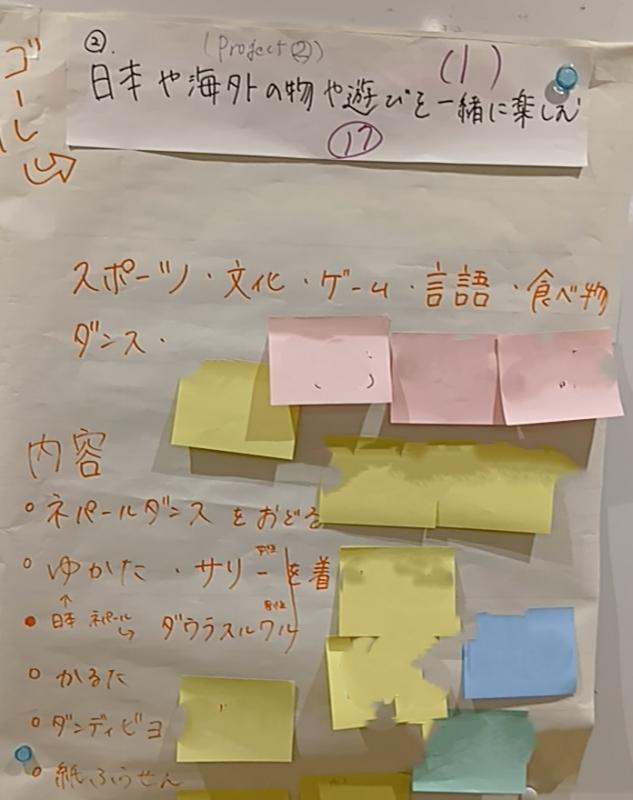 ゴール
②. (Project②) (1)
日本や海外の物や遊びを一緒に楽しむ
⑰
スポーツ・文化・ゲーム・言語・食べ物
ダンス・
内容
○ネパールダンスをおどる
○ゆかた・サリーを着
↑日本 ネパール ダウラスルワル 男性
○かるた
○ダンディビヨ
○紙ふうせん